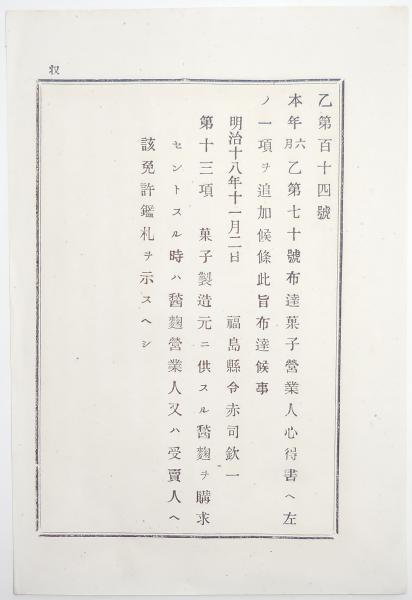 収
乙第百十四號
本年六月乙第七十號布達菓子營業人心得書ヘ左
ノ一項ヲ追加候條此旨布達候事
明治十八年十一月二日　福島縣令赤司欽一
第十三項　菓子製造元ニ供スル麴ヲ購求
セントスル時ハ麴營業人又ハ受賣人ヘ
該免許鑑札ヲ示スヘシ